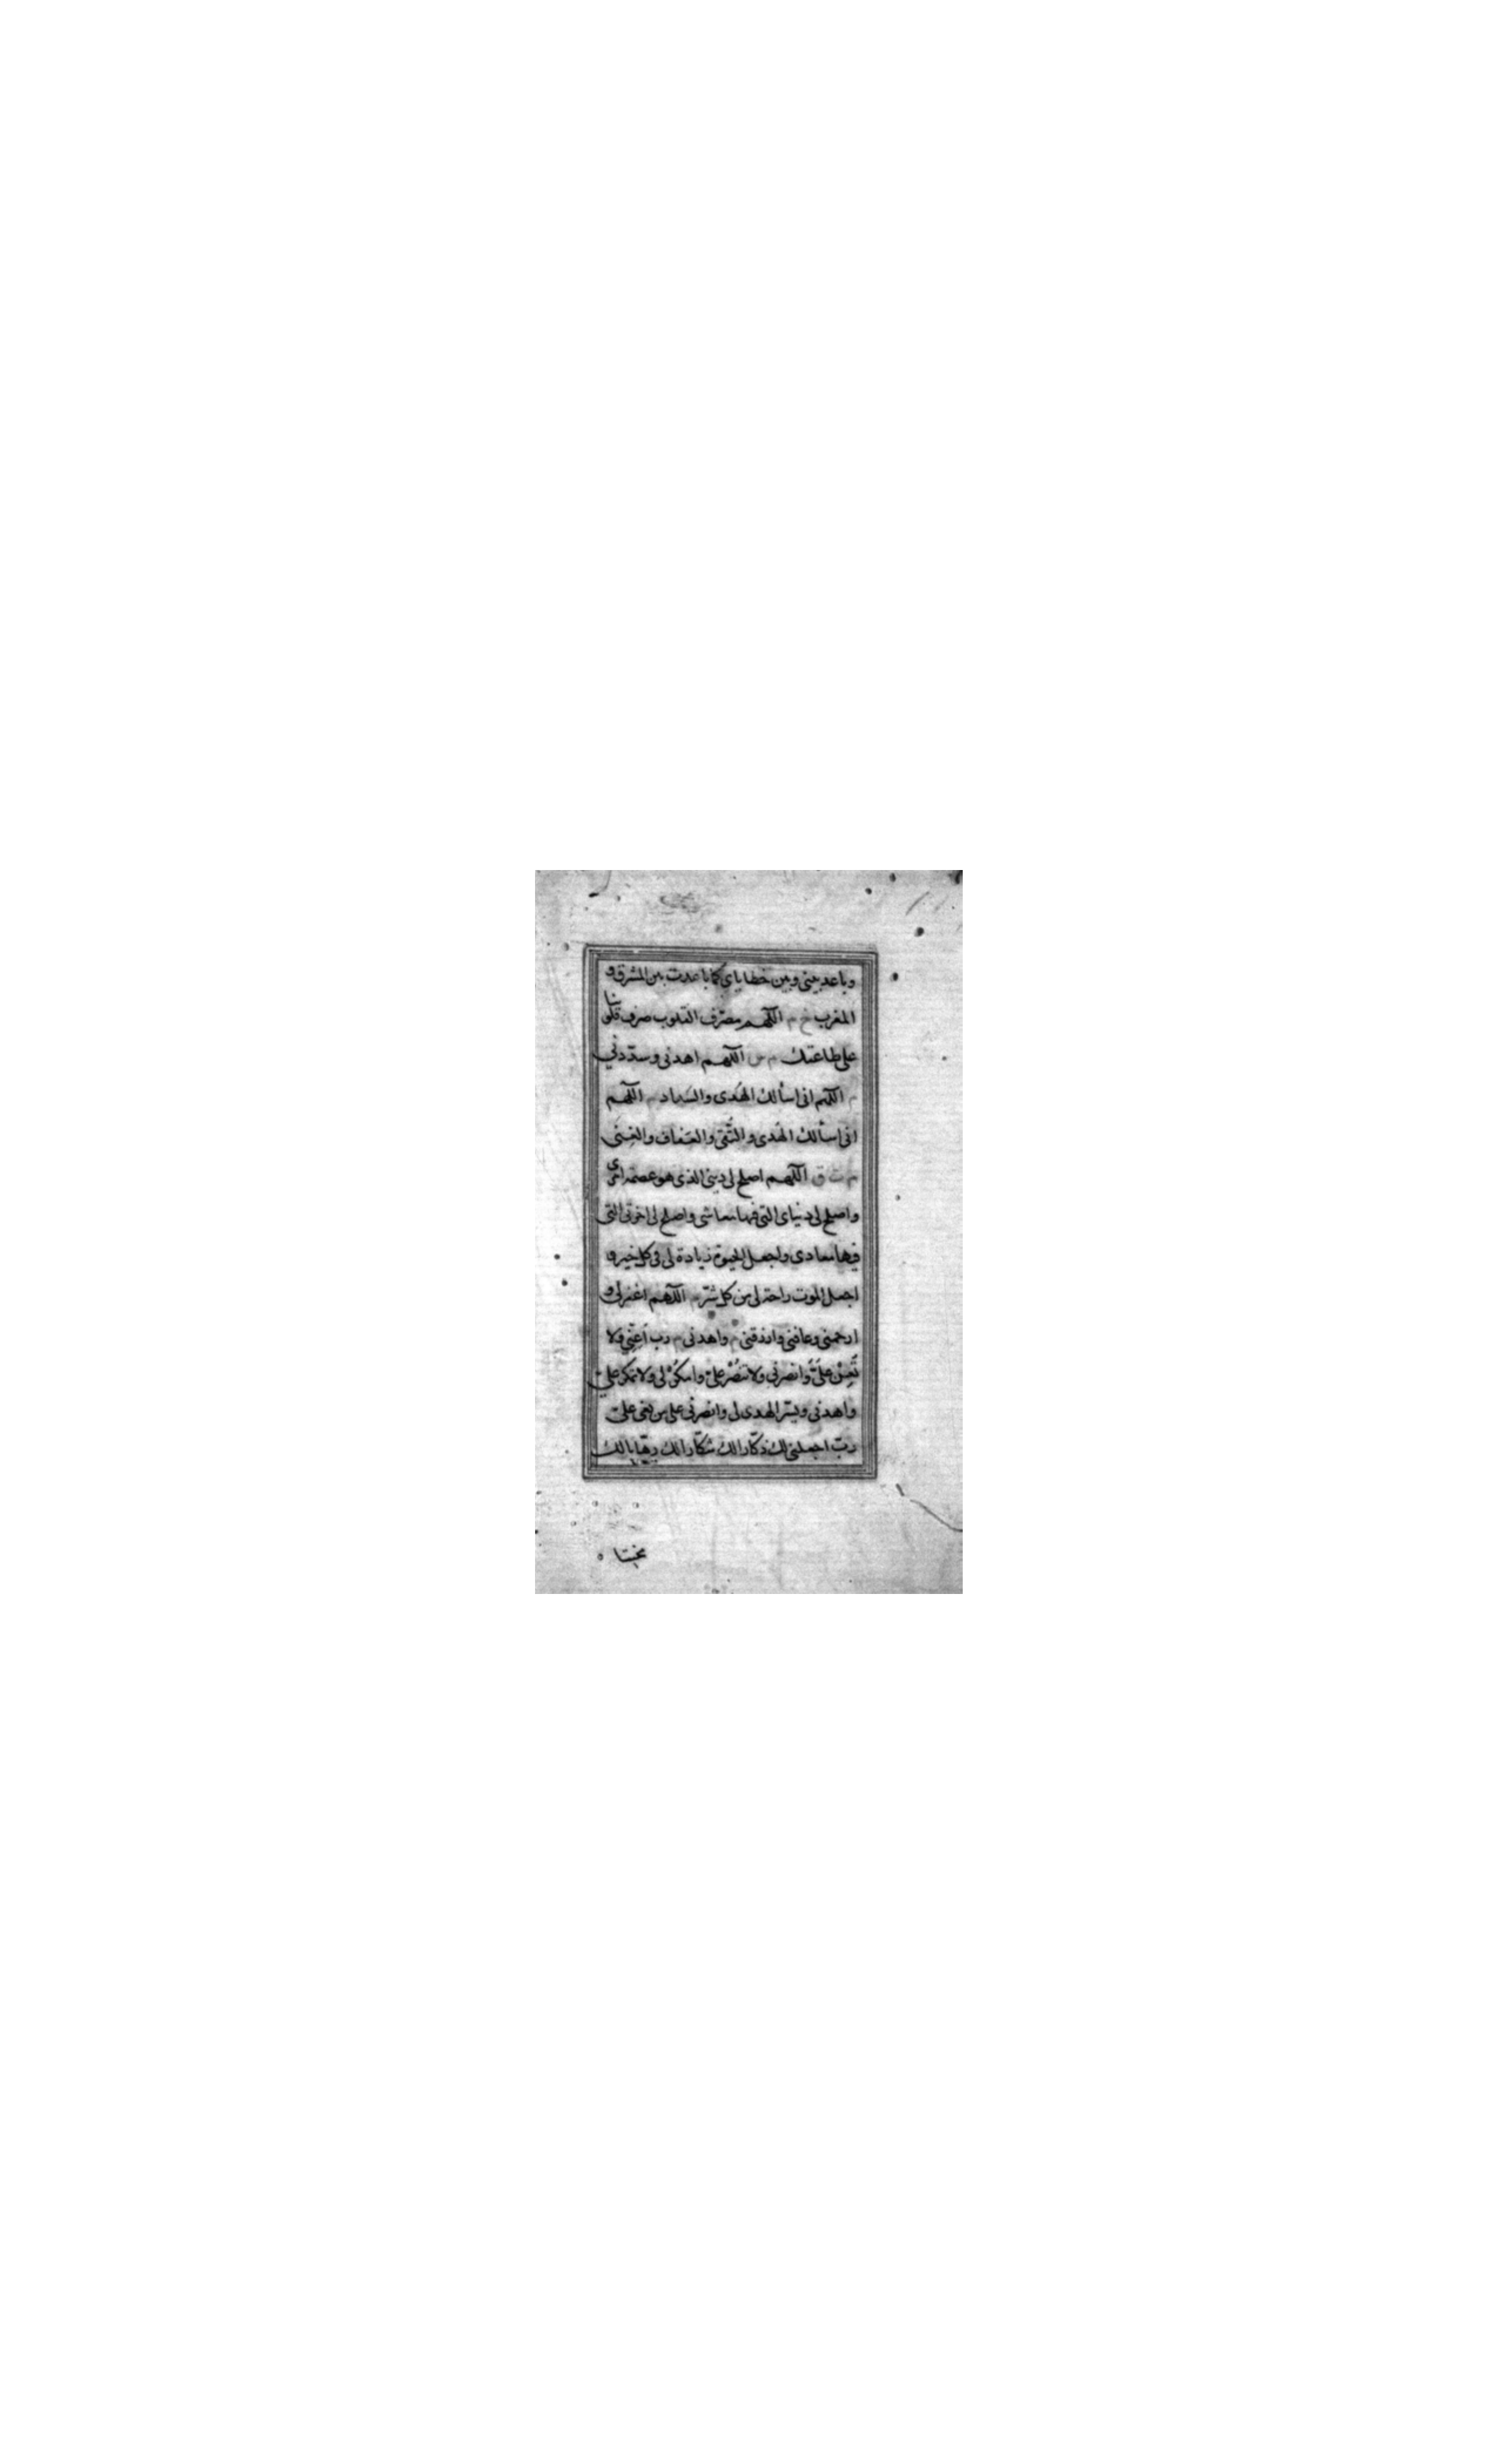 وباعد بيني وبين خطاياي كما باعدت بين المشرق و
المغرب خ م اللّهم مصرّف القلوب صرف قلوبنا
على طاعتك م س اللّهم اهدنى وسدّدني
م اللّهم انى اسألك الهُدى والسَداد م اللّهم
انى اسألك الهُدى والتُّقى والعَفاف والغِنَى
م ت ق اللّهم اصلح لى دينى الذى هو عصمة امرى
واصلح لى دنياى التى فيها معاشى واصلح لى اخرتى التى
فيها معادى واجعل الحيوة زيادة لى فى كل خير و
اجعل الموت راحة لى من كل شرّ م اللّهم اغفرلى و
ارحمنى وعافنى وارزقنى م واهدنى م رب اَعِنِّي ولا
تُعِنْ عَلَيَّ وانصرنى ولا تنصُرْ علىّ وامكُرْ لى ولا تمكر علىّ
واهدنى ويسّر الهدى لى وانصرنى على من بغى علىّ
ربّ اجعلنى لك ذكّارا لك شكّارا لك رهّابا لك
مخبتا